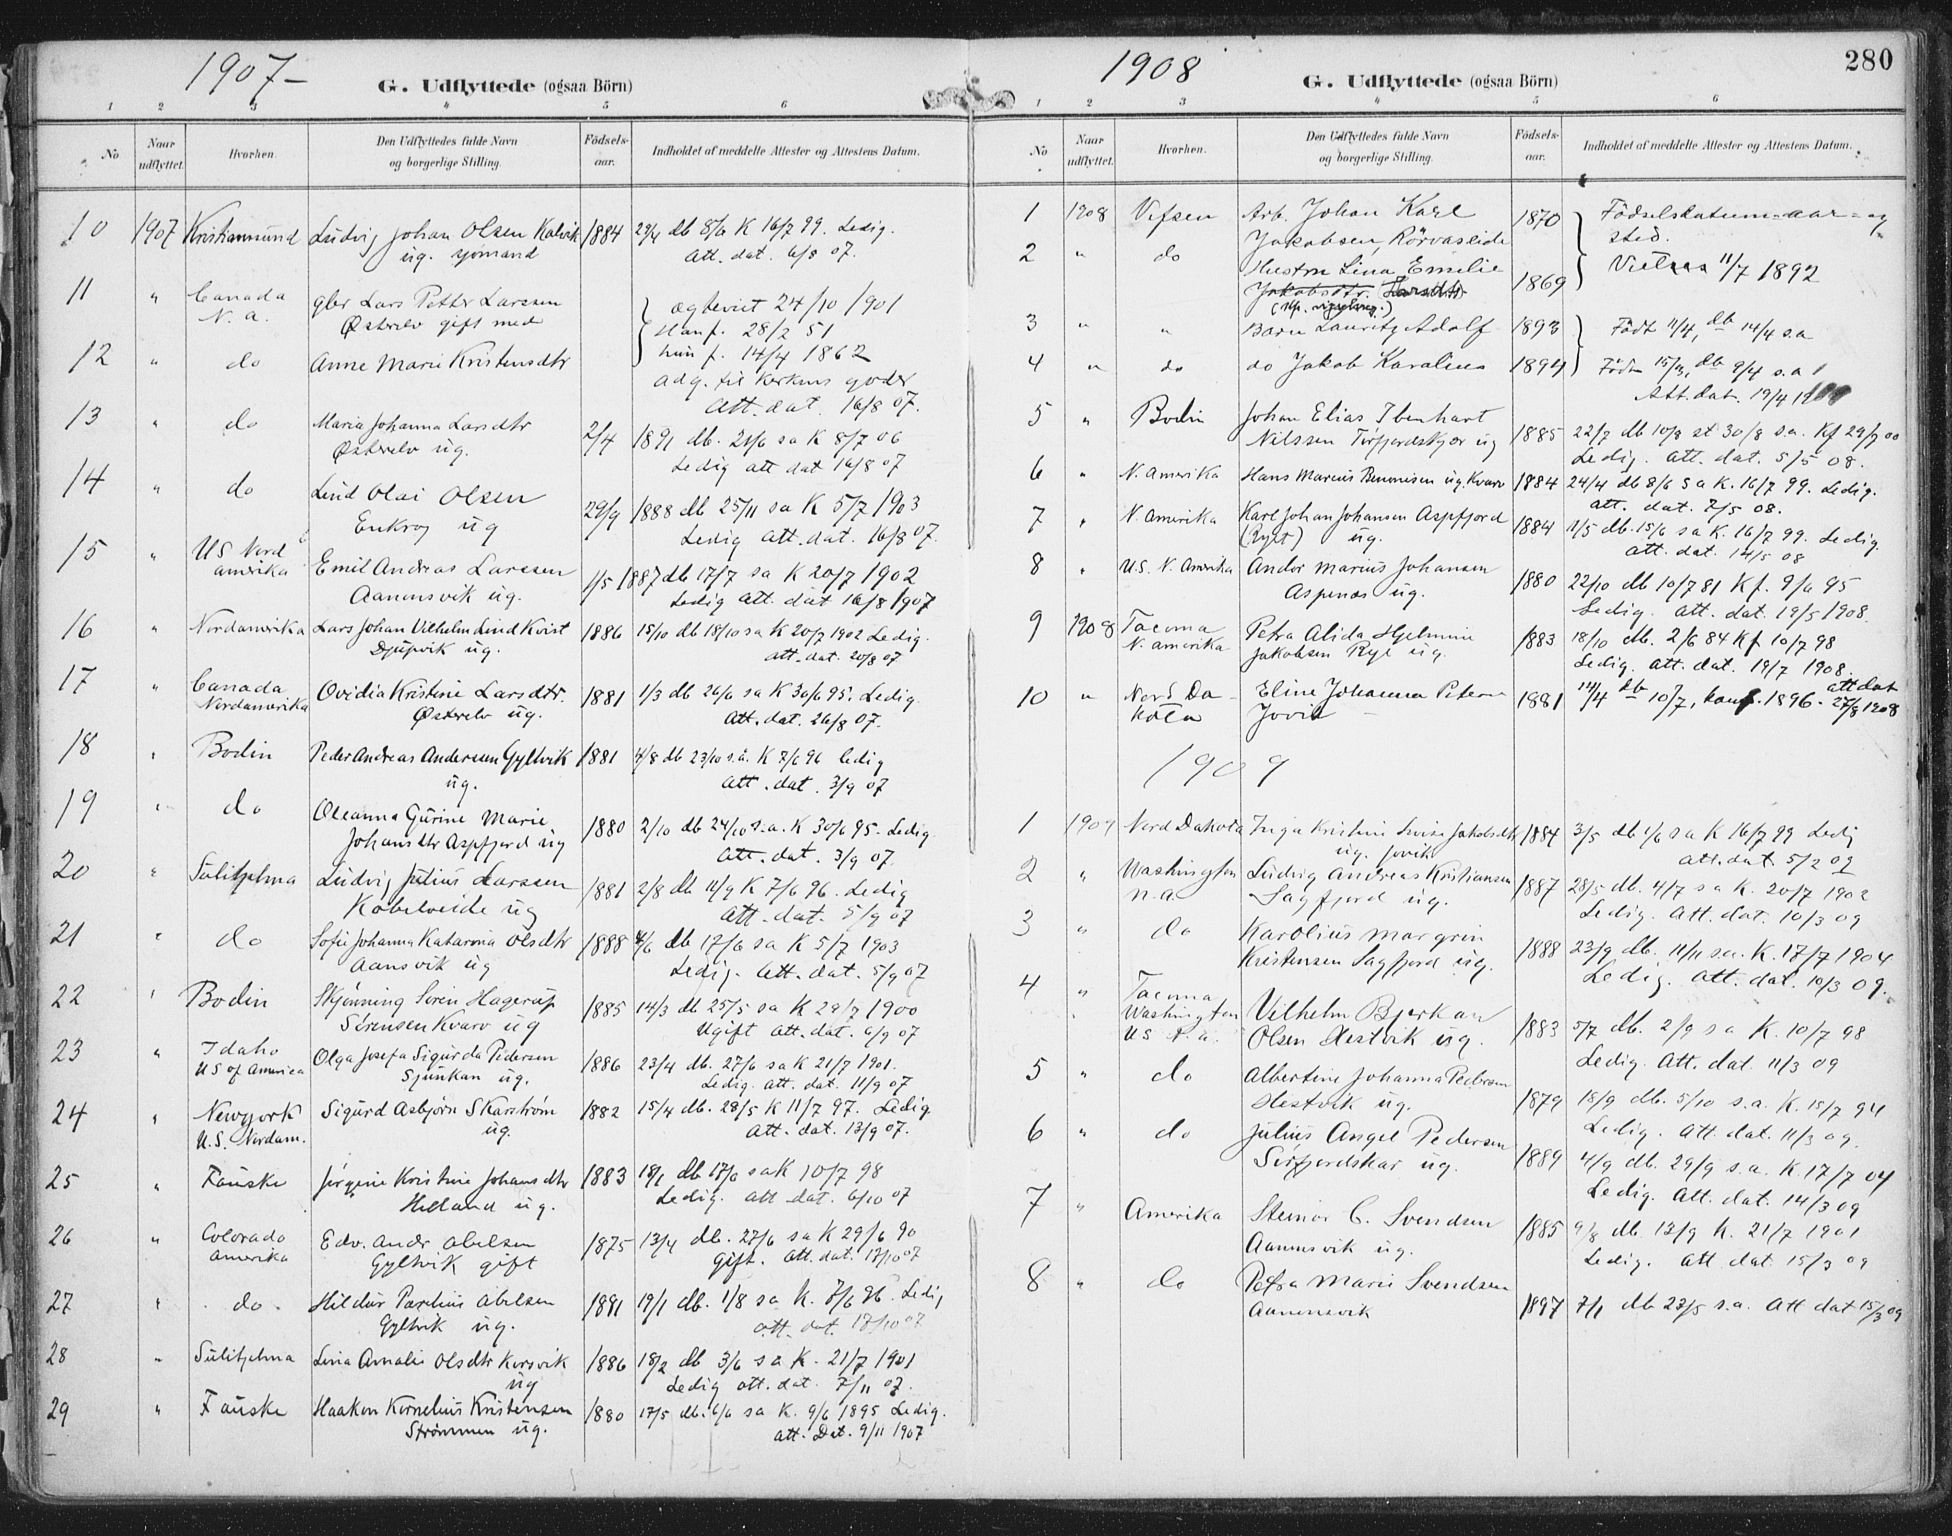 1907 -
G. Udflyttede (ogsaa Börn)
1 2 3 4 5 6
No
Naar udflyttet.
Hvorhen.
Den Udflyttedes fulde Navn og borgerlige Stilling.
Födsels-aar.
Indholdet af meddelte Attester og Attestens Datum.
10 1907 Kristiansund Ludvig Johan Olsen Kalvik 1884 29/4 db 8/6 K 16/7 99. Ledig.
ug. sjömand att. dat. 6/8 07.
11 " Canada gbr Lars Petter Larssen ægteviet 24/10 1901
N. a. Østerelv gift med Han f. 28/2 51
12 " do Anne Marie Kristensdtr hun f. 14/4 1862
adg. til kerkens goder
att. dat. 16/8 07.
13 " do Maria Johanna Larsdtr 2/4 1891 db. 21/6 sa K 8/7 06
Østerelv ug. Ledig att dat 16/8 07
14 " do Lind Olai Olsen 29/9 1888 db 25/11 sa K 5/7 1903
Enkroj ug Ledig att. dat. 16/8 07.
15 " US Nord Emil Andreas Larssen 1/5 1887 db 17/7 sa K 20/7 1902
amerika Aanensvik ug. Ledig att. dat 16/8 1907
16 " Nordamerika Lars Johan Vilhelm Lind Kvist 1886 15/10 db 18/10 sa K 20/7 1902 Ledig.
Djupvik ug. att. dat. 20/8 07
17 " Canada Ovidia Kristine Larsdtr. 1881 1/3 db 26/6 sa K 30/6 95. Ledig
Nordamerika Østerelv ug. att. dat. 26/8 07.
18 " Bodin Peder Andreas Andersen Gyltvik 1881 4/8 db 23/10 s.a. K 7/6 96 ledig
ug. att. dat. 3/9 07
19 " do Oleanna Gurine Marie 1880 2/10 db 24/10 s.a. K 30/6 95. Ledig
Johansdtr Aspfjord ug att. dat. 3/9 07.
20 " Sulitjelma Ludvig Julius Larssen 1881 2/8 db 11/9 K 7/6 96. Ledig
Kobelveide ug att. dat. 5/9 07
21 " do Sofie Johanna Katarina Olsdtr 1888 4/6 db 17/6 sa K 5/7 1903
Aansvik ug Ledig. att. dat. 5/9 07
22 " Bodin Skjønning Sören Hagerup 1885 14/3 db 25/5 sa K 29/7 1900
Sörensen Kvarv ug Ugift att. dat. 9/9 07
23 " Idaho Olga Josefa Sigurda Pedersen 1886 23/4 db. 27/6 sa K 21/7 1901.
US of America Sjunkan ug. Ledig. att. dat. 11/9 07
24 " Newyork Sigurd Asbjörn Skarström 1882 15/4 db. 28/5 K 11/7 97. Ledig
U.S. Nordam. ug. att. dat. 13/9 07.
25 " Fauske Jørgine Kristine Johansdtr 1883 18/1 db 17/6 sa K 10/7 98
Helland ug. Ledig. att dat. 6/10 07
26 " Colorado Edv. Andr. Abelsen 1875 13/4 db. 27/6 sa K 29/6 90
Amerika Gyltvik gift Gift. att. dat. 17/10 07
27 " do. Hildur Pareluis Abelsen 1881 19/1 db. 1/8 sa K. 7/6 96. Ledig
Gyltvik ug. att. dat. 17/10 07
28 " Sulitjelma Lina Amalie Olsdtr Korsvik 1886 18/2 db 3/6 sa K. 21/7 1901
ug Ledig att. dat. 7/11 07.
29 " Fauske Haakon Kornelius Kristensen 1880 17/5 db. 6/6 sa K. 9/6 1895 Ledig.
Strømmen ug. att. Dat. 9/11 1907
1908
280
G. Udflyttede (ogsaa Börn)
1 2 3 4 5 6
No
Naar udflyttet.
Hvorhen.
Den Udflyttedes fulde Navn og borgerlige Stilling.
Födsels-aar.
Indholdet af meddelte Attester og Attestens Datum.
1 1908 Vefsen Arb. Johan Karl 1870 Födselsdatum-aar- og
Jakobsen, Rörvaseide sted.
2 " do Hustru Lina Emilie 1869 Vielses 11/7 1892
Jakobsdtr.
3 " " Barn Lauritz Adolf 1893 Födt 11/4, db 14/4 s.a
4 " do do Jakob Karolius 1894 Födt 15/3, db 9/4 s.a
Att. dat. 19/4
5 " Bodin Johan Elias Ibenhart 1885 22/7 db 10/8 st 30/8 s.a. Kf 29/7 00
Nilssen Tørfjordskjor ug Ledig. att. dat. 5/5 08.
6 " N. Amerika Hans Marcus Benonisen ug. Kvarv 1884 24/4 db 8/6 sa K. 16/7 99. Ledig.
att. dat. 7/5 08.
7 " N. Amerika Karl Johan Johansen Aspfjord 1884 1/5 db. 15/6 sa K. 16/7 99. Ledig.
(Ryet) ug. att. dat. 14/5 08
8 " U.S. N. Amerika Andor Marius Johansen 1880 22/10 db 10/7 81 Kf. 9/6 95
Aspenæs ug. Ledig. att. dat. 19/5 1908.
9 1908 Tacoma Petra Alida Hjelmine 1883 18/10 db. 2/6 84 Kf 10/7 98
N. amerika Jakobsen Rye ug. Ledig. att. dat. 19/7 1908.
10 " Nord Da- Eline Johanna Peters 1881 14/4 db 10/7, konf. 1896. att dat
kota Jovik 27/8 1908
1909
1 1909 Nord Dakota Inga Kristine Lovise Jakobsdtr 1884 3/5 db 1/6 sa K 16/7 99 Ledig
ug. Jovik att. dat 5/2 09
2 " Washington Ludvig Andreas Kristiansen 1887 28/5 db. 4/7 sa K. 20/7 1902
n. a. Sagfjord ug. Ledig. att. dat. 10/3 09
3 " do Karolius Margrin 1888 23/9 db. 11/11 s.a. K. 17/7 1904
Kristensen Sagfjord ug. Ledig. att. dat. 10/3 09.
4 " Tacoma Vilhelm Bjerkan 1883 5/7 db. 2/9 sa K. 10/7 98
Washington Olsen Hestvik ug. Ledig. Att. dat. 11/3 09
US N. a.
5 " do Albertine Johanna Pedersen 1879 18/9 db. 5/10 s.a. K. 15/7 94
Hestvik ug. Ledig. att. dat. 11/3 09.
6 " do Julius Angel Pedersen 1889 4/9 db. 29/9 s.a. K 17/7 04
Sörfjordskar ug. Ledig. att. dat. 14/3 09
7 " Amerika Steinor C. Svendsen 1885 9/8 db. 13/9 K. 21/7 1901
Aanensvik ug. Ledig. att dat 15/3 09
8 " do Petra Marie Svendsen 1897 7/1 db 23/5 s.a. att dat 15/3 09
Aanensvik